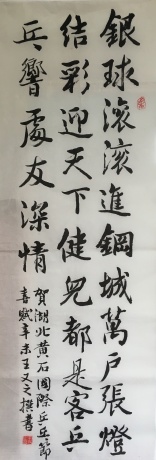 銀球滾滾進鋼城萬戶張燈
結彩迎天下健兒都是客乒
乓響處友深情
賀湖北黃石國際乒乓節
喜賦辛未王又之撰書